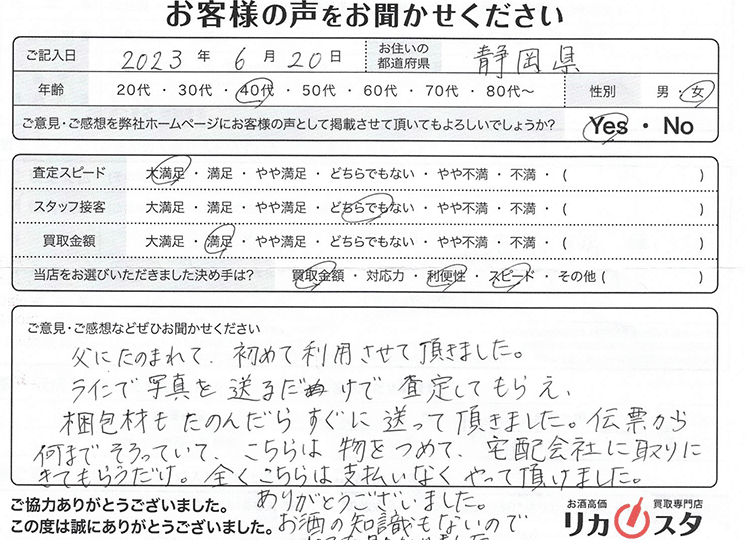 お客様の声をお聞かせください
ご記入日 2023 年 6 月 20 日 お住いの都道府県 静岡県
年齢 20代 ・ 30代 ・ 40代 ・ 50代 ・ 60代 ・ 70代 ・ 80代～ 性別 男 ・ 女
ご意見・ご感想を弊社ホームページにお客様の声として掲載させて頂いてもよろしいでしょうか? Yes ・ No
査定スピード 大満足 ・ 満足 ・ やや満足 ・ どちらでもない ・ やや不満 ・ 不満 ・ ( )
スタッフ接客 大満足 ・ 満足 ・ やや満足 ・ どちらでもない ・ やや不満 ・ 不満 ・ ( )
買取金額 大満足 ・ 満足 ・ やや満足 ・ どちらでもない ・ やや不満 ・ 不満 ・ ( )
当店をお選びいただきました決め手は? 買取金額 ・ 対応力 ・ 利便性 ・ スピード ・ その他 ( )
ご意見・ご感想などぜひお聞かせください
父にたのまれて、初めて利用させて頂きました。
ラインで写真を送るだけで査定してもらえ、
梱包材もたのんだらすぐに送って頂きました。伝票から
何までそろっていて、こちらは物をつめて、宅配会社に取りに
きてもらうだけ。全くこちらは支払いなくやって頂けました。
ありがとうございました。
お酒の知識もないので
ご協力ありがとうございました。
この度は誠にありがとうございました。
お酒高価 買取専門店
リカスタ